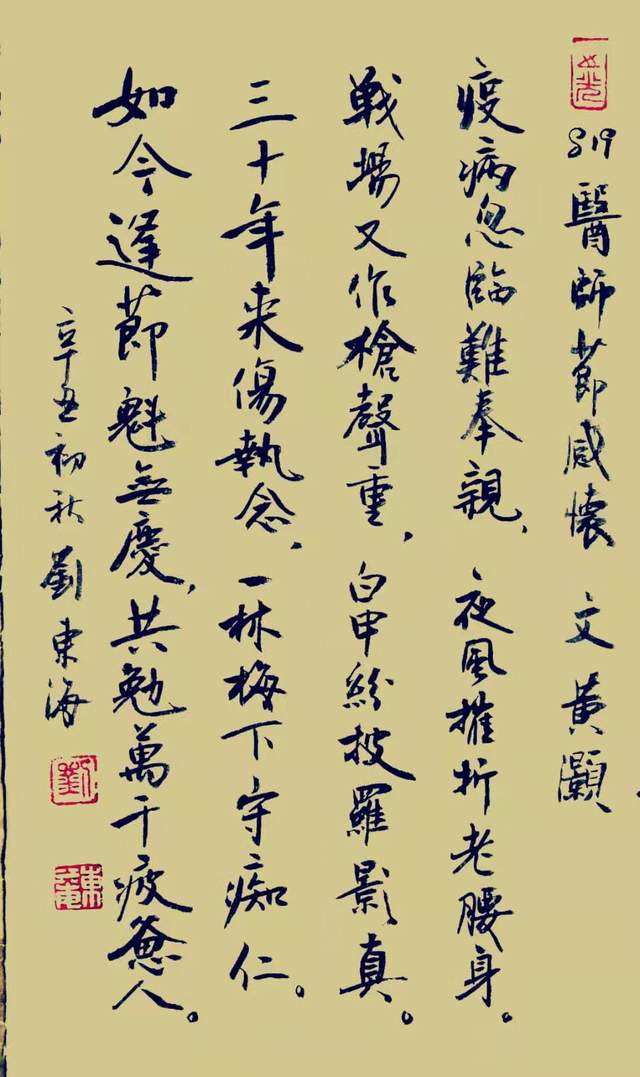 819醫師節感懷 文 黄灝
疫病忽臨難奉親，夜風摧折老腰身。
戰場又作槍聲重，白甲紛披羅影真。
三十年来傷執念，一林梅下守痴仁。
如今逢節魁無慶，共勉萬千疲憊人。
辛丑初秋 劉東海
劉